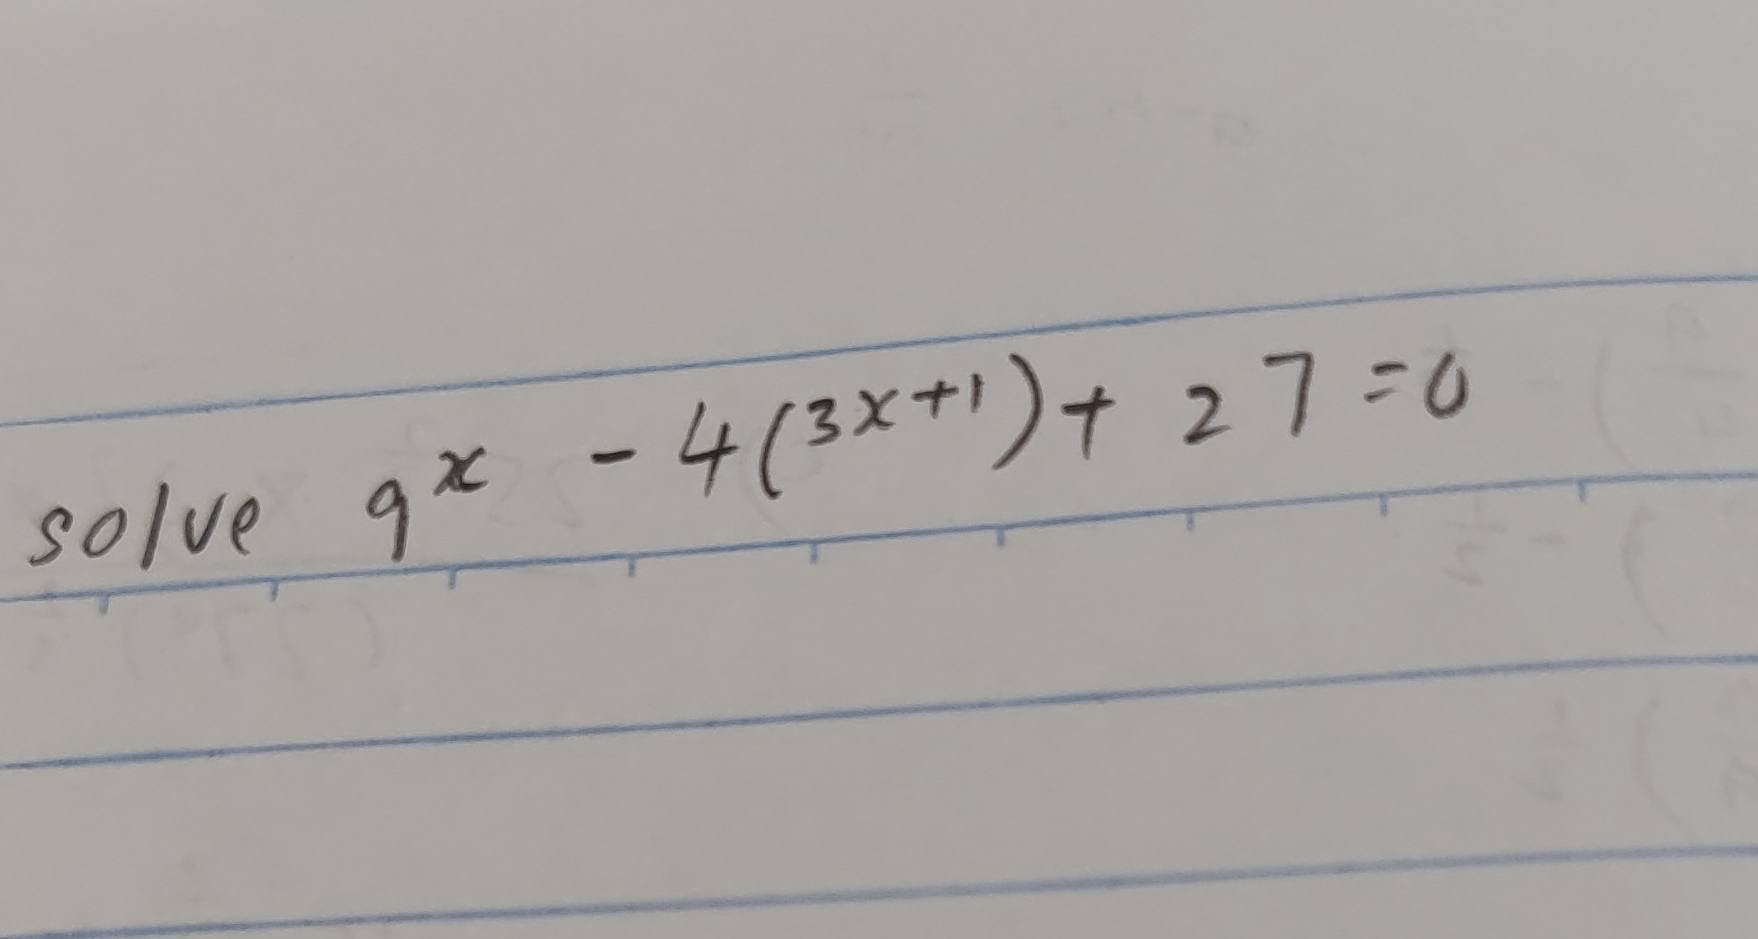 solve 9^x - 4(3x+1) + 27 = 0